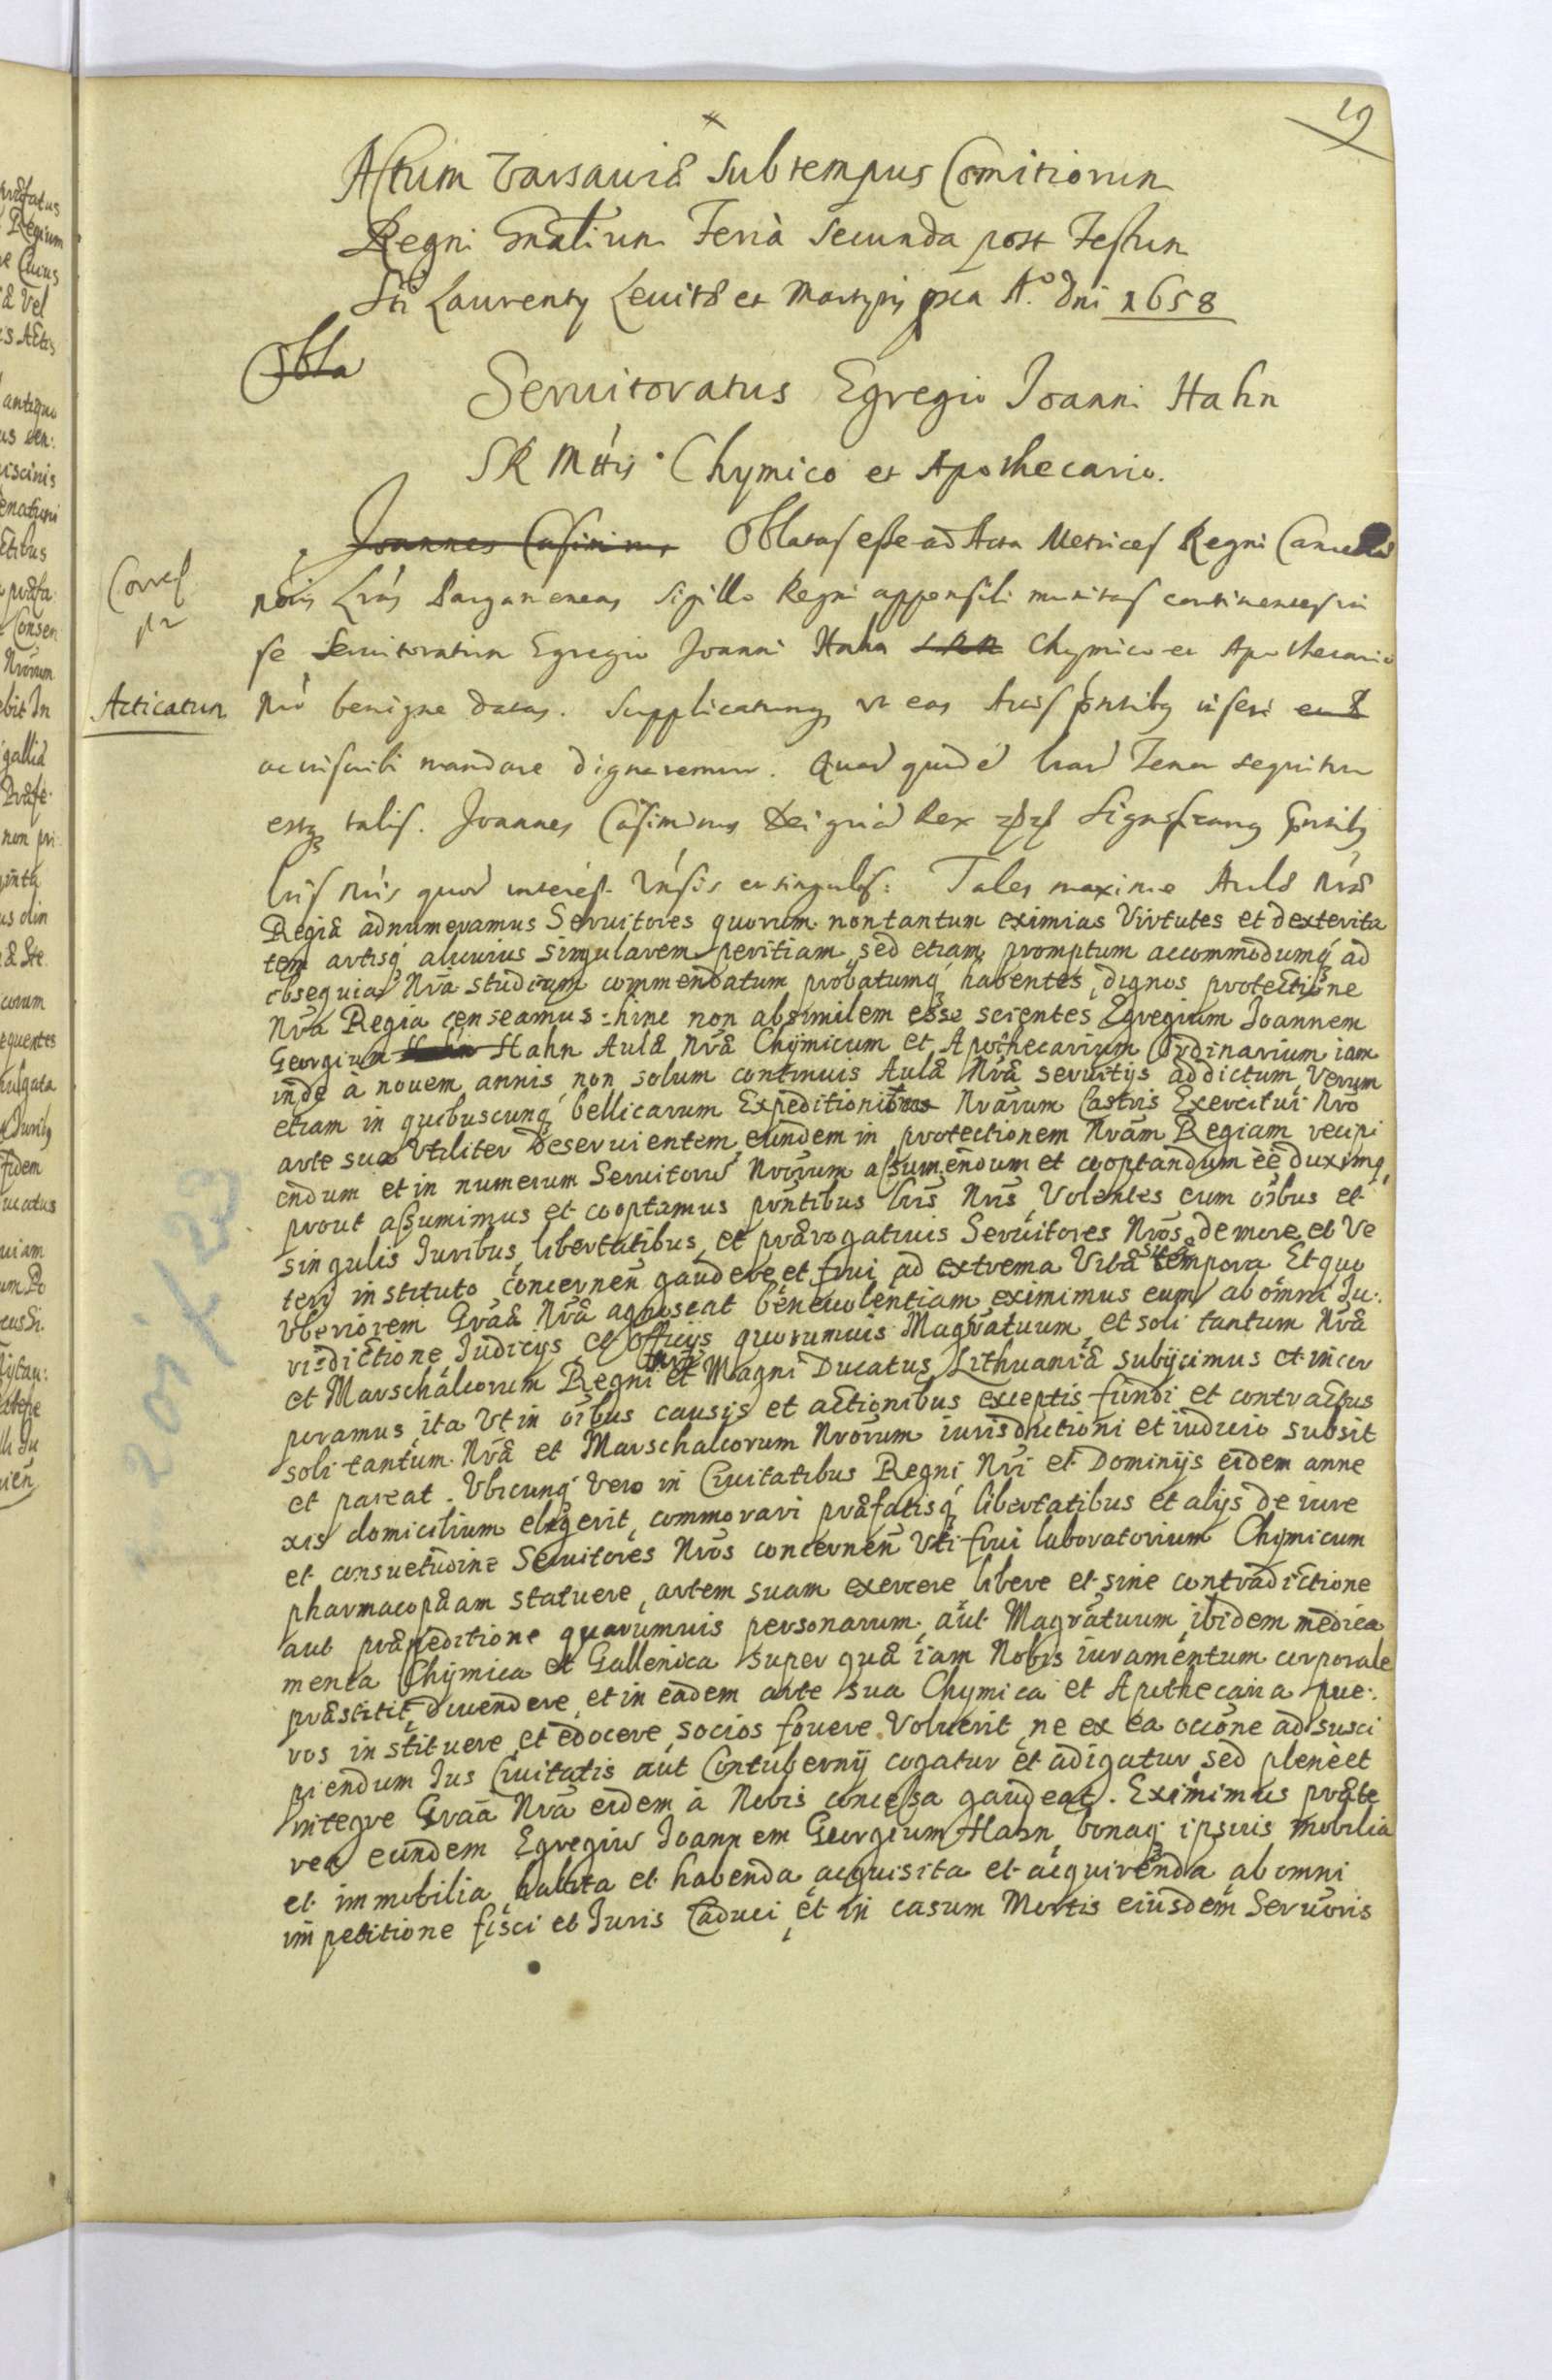 19
Actum Varsauiæ sub tempus Comitiorum
Regni Gnãlium Feria Secunda post Festum
Sti Laurentÿ Leuitæ et Martyris A.º Dni 1658
Obla
Seruitoratus Egregio Joanni Hahn
SR Mttis Chymico et Apothecario.
Joannes Casimirus Oblatas esse ad Acta Metrices Regni Cancellariæ
Corres
nõis Lrás Parganeneas Sigillo Regni appensili munitas continentes in
se Seruitoratum Egregio Joanni Hahn Chymico et Apothecario
Acticatum
nrõ benigne datas. Supplicatumq vt eas Actis pñtibq inseri
ac inscribi mandare dignaremur. Quar quidé lrar Tenor sequitur
estq talis. Joannes Casimirus Dei gria Rex Significamus pñtibq
lris nris quor interest Vnsis et singulis: Tales maxime Aulæ Nræ
Regiæ adnumeramus Seruitores quorum non tantum eximias Virtutes et dexterita
tem artisq alicuius singularem peritiam, sed etiam promptum accommodumq ad
obsequia Nrã studium commendatum probatumq habentes, dignos protectione
Nrã Regia censeamus: hinc non absimilem esse scientes Egregium Joannem
Georgium Hahn Hahn Aulæ Nræ Chÿmicum et Apothecarium Ordinarium iam
inde à nouem annis non solum continuis Aulæ Nræ seruitÿs addictum Verum
etiam in quibuscunq bellicarum Expeditionibus Nrarum Castris Exercitui Nrõ
arte sua Vtiliter Deseruientem, eundem in protectionem Nrãm Regiam recipi
endum et in numerum Seruitorũ Nrõrum assumendum et cooptandum ẽe duximq,
prout assumimus et cooptamus pñtibus lris Nris, Volentes eum oĩbus et
singulis Juribus, libertatibus, et prærogatiuis Seruitores Nrõs de more et Ve
teri instituto concernen̄ gaudere et frui ad extrema Vitæ suæ tempora Et quo
Vberiorem Grãæ Nræ agnoscat beneuolentiam eximimus eum ab omni Ju:
risdictione Judicÿs et Officÿs quorumuis Magrãtuum, et soli tantum Nræ
et Marschalcorum Regni Nri et Magni Ducatus Lithuaniæ subÿcimus et incor
poramus, ita Vt in oĩbus causis et actionibus exceptis fundi et contractus
soli tantum Nræ et Marschalcorum Nrõrum iurisdictioni et iudicio subsit
et pareat. Vbicunq Vero in Ciuitatibus Regni Nri et Dominÿs eidem anne
xis domicilium elegerit, commorari præfatisq libertatibus et alÿs de iure
et consuetudine Seruitores Nrõs concernen̄ Vti frui laboratorium Chymicum
pharmacopæam statuere, artem suam exercere libere et sine contradictione
aut præpeditione quarumuis personarum, aut Magrãtuum, ibidem medica
menta Chÿmica et Gallenica super quæ iam Nobis iuramentum corporale
præstitit, diuendere, et in eadem arte sua Chymica et Apothecaria pue:
ros instituere, et edocere, socios fouere Voluerit, ne ex ea occõne ad susci
piendum Jus Ciuitatis aut Contubernÿ cogatur et adigatur sed plenè et
integre Grãa Nrã eidem à Nobis concessa gaudeat. Eximimus præte
rea eundem Egregiũ Joannem Georgium Hahn, bonaq ipsius mobilia
et immobilia, habita et habenda, acquisita et acquirenda, ab omni
impetitione fisci et Juris Caduci, et in casum Mortis eiusdem Seruoris